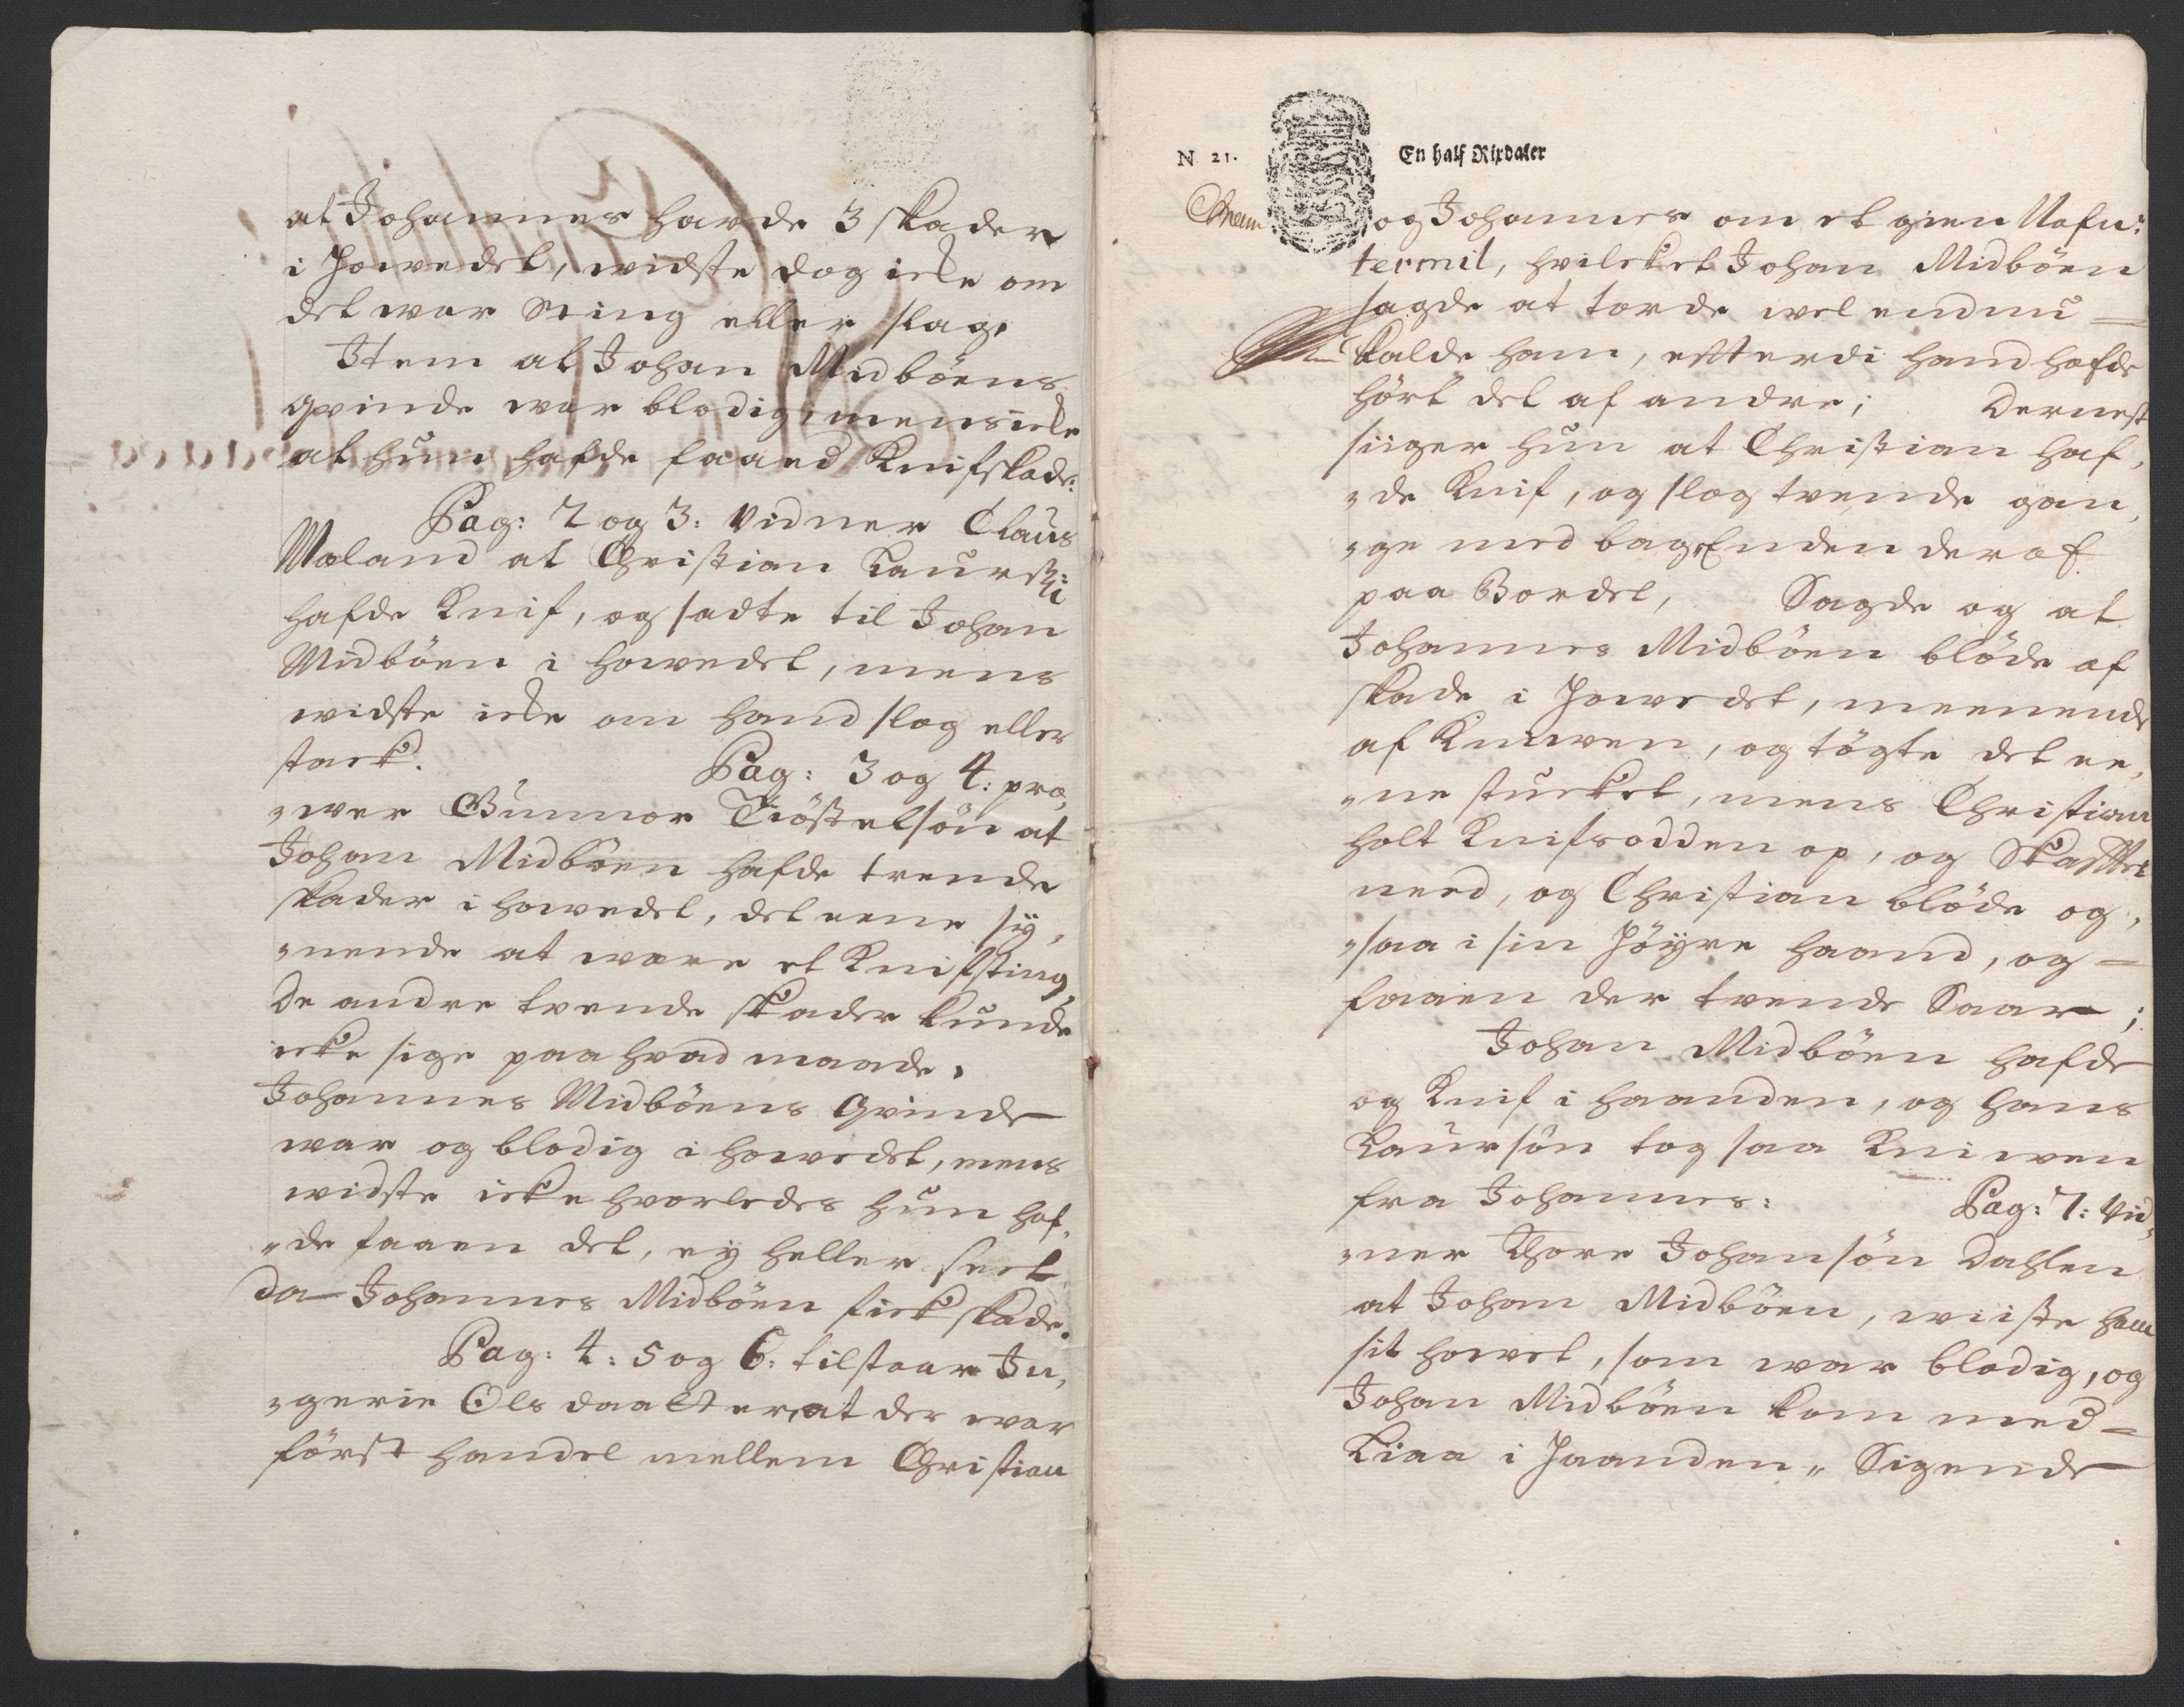 at Johannes hafde 3 skader
i Howedet, widste dog icke om
det war Sting eller slag.
Item at Johan Midböens
qvinde war blodig, mens icke
at hun hafde faaed Knifskade:
Pag: 2 og 3: Vidner Claus
Moland at Christian Laurss:
hafde Knif, og sadte til Johan
Midböen i howedet, mens
widste icke om hand slog eller
stack. Pag: 3 og 4: pro,
„wer Gunnor Kiöstelsön at
Johan Midböen hafde trende
skader i howedet, det eene sÿ,
„nende at were et Knifsting,
De andre tvende skader kunde
icke sige paa hvad maade.
Johannes Midböens Qvinde
war og blodig i howedet, mens
widste icke hvorledes hun haf,
„de faaen det, eÿ heller seet
da Johannes Midböen fick skade.
Pag: 4: 5 og 6: tilstaar In,
„gerie Olsdaatter, at der war
först handel mellem Christian
N 21. En half Rixdaler
og Johannes om et gien
termil, hvilcket Johan Midböen
sagde at torde wel endnu
kalde ham, effterdi hand hafde
hört det af andre; Dernest
siiger hun at Christian haf,
„de Knif, og slog tvende gan,
„ge med bag Enden deraf
paa Bordet, Sagde og at
Johannes Midböen blöde af
skade i Howedet, meenende
af Kniwen, og tögte det ee,
„ne stucket, mens Christian
holt Knifsodden op, og Skafftet
need, og Christian blöde og,
„saa i sin Höÿre haand, og
faaen der tvende Saar;
Johan Midböen hafde
og Knif i haanden, og Hans
Laursön tog saa Kniwen
fra Johannes: Pag: 7: Vid,
„ner Thore Johansön Dahlen
at Johan Midböen, wiiste ham
sit howet, som war blodig, og
Johan Midböen kom med
Liaa i Haanden, Sigende